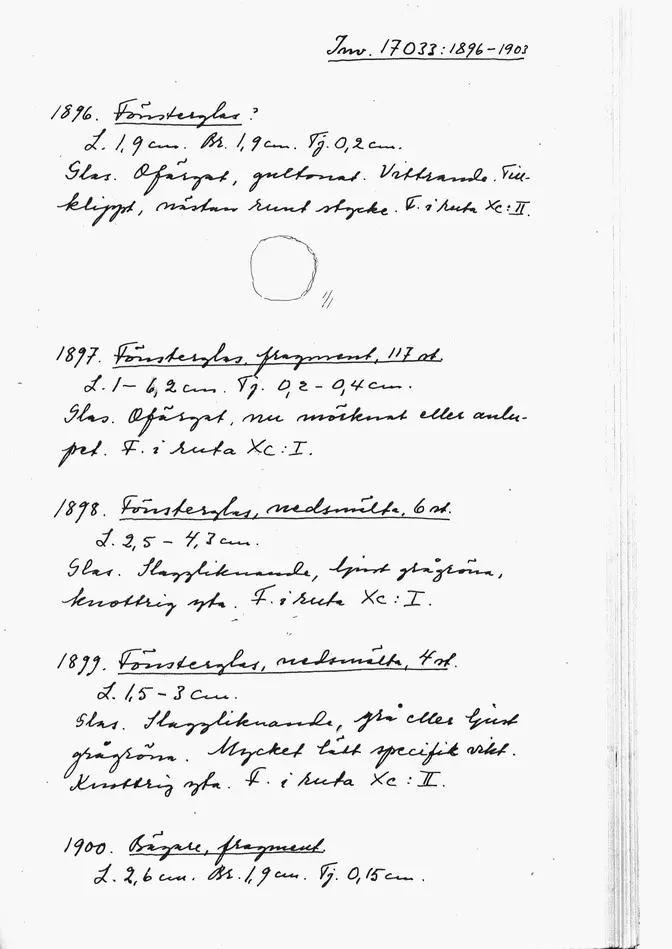 Inv. 17033:1896-1903
1896. Fönsterglas?
L. 1,9 cm. Br. 1,9 cm. Tj. 0,2 cm.
Glas. Ofärgat, gultonat. Vittrande. Till-
klippt, nästan runt stycke. F. i ruta Xc:II.
1897. Fönsterglas, fragment, 117 st.
L. 1 - 6,2 cm. Tj. 0,2 - 0,4 cm.
Glas. Ofärgat, nu mörknat eller anlu-
pet. F. i ruta Xc: I.
1898. Fönsterglas, nedsmälta, 6 st.
L. 2,5 - 4,3 cm.
Glas. Slaggliknande, ljust grågröna,
knottrig yta. F. i ruta Xc: I.
1899. Fönsterglas, nedsmälta, 4 st.
L. 1,5 - 3 cm.
Glas. Slaggliknande, grå eller ljust
grågröna. Mycket lätt specifik vikt.
Knottrig yta. F. i ruta Xc: II.
1900. Bägare, fragment
L. 2,6 cm. Br. 1,9 cm. Tj. 0,15 cm.